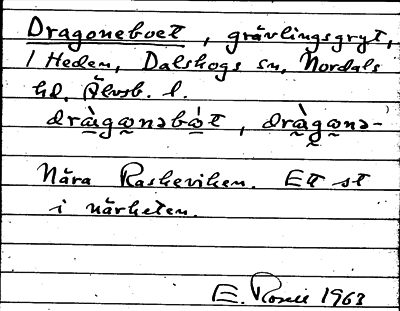 Dragoneboet, grävlingsgryt,
1 Heden, Dalskogs sn, Nordals
hd, Älvsb. l.
dràgωnəbòt, dràgωnə-
Nära Raskeviken. Ett st
i närheten.
E. 1963